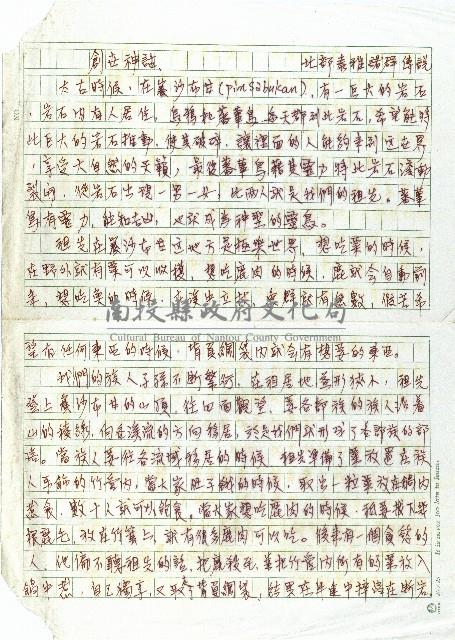 創世神話 北部泰雅諸群傳說
太古時候,在賓沙布甘(Pinsəbukan),有一巨大的岩石
,岩石內有人居住,烏鴉和蓄蓄鳥每天都到此岩石,希望能將
此巨大的岩石推動,使其破碎,讓裡面的人能夠來到這世界
,享受大自然的天籟,最後蓄蓄鳥藉其靈力將此岩石滾動
裂開,從岩石出現一男一女,此兩人就是我們的祖先。蓄蓄
鳥有靈力,能知吉凶,也就成為神聖的靈鳥。
祖先在賓沙布甘這地方是極樂世界,想吃菜的時候,
在野外就有菜可以收穫,想吃鹿肉的時候,鹿就會自動前
來,想吃魚的時候,無數,假若希
南投縣政府文化局
Cultural Bureau of Nantou County Government
望有任何東西的時候,背負網袋內就會有想要的東西。
我們的族人子孫不斷繁衍,在祖居地並形狹小,祖先
登上賓沙布甘的山頂,往四面觀望,要各部族的族人沿着
山的稜線,向各溪流的方向移居,於是我們就形成了各部族的部
落。當族人要往各流域移居的時候,祖先準備了粟放置在族
人耳飾的竹管內,當大家肚子餓的時候,取出一粒粟放在鍋內
煮食,數十人就可以飽食。當大家想吃鹿肉的時候,祗要拔下些
根鹿毛,放在竹簍上,就有很多鹿肉可以吃。後來有一個貪婪的
人,他偏不聽祖先的話,把鹿毛,並把竹管內所有的粟放入
鍋中煮,自己獨享,又取了背負網袋,結果在半途中掉落在斷岩